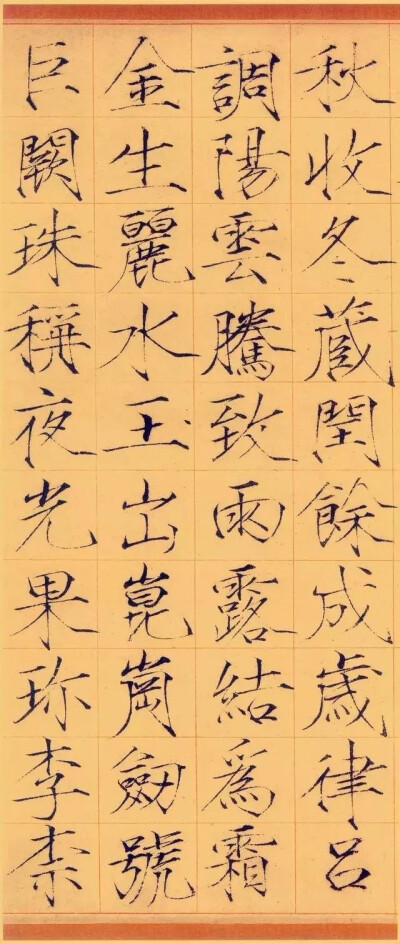 秋收冬蔵閏餘成歳律呂
調陽雲騰致雨露結爲霜
金生麗水玉山崑崗劔號
巨闕珠稱夜光果珎李柰